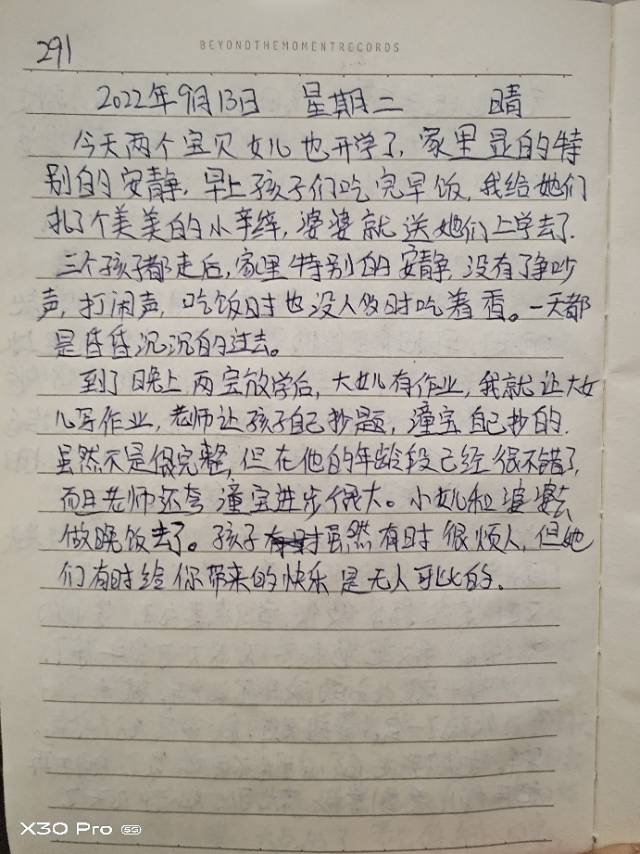 291
BEYONDTHEMOMENTRECORDS
2022年9月13日 星期二 晴
今天两个宝贝女儿也开学了,家里显的特
别的安静,早上孩子们吃完早饭,我给她们
扎了个美美的小辛绊,婆婆就送她们上学去了.
三个孩子都走后,家里特别的安静,没有了争吵
声,打闹声,吃饭时也没人 时吃着香。一天都
是昏昏沉沉的过去。
到了晚上,两宝放学后,大女儿有作业,我就让大女
儿写作业,老师让孩子自己抄题,潼宝自己抄的.
虽然不是很完整,但在他的年龄段已经很不错了,
而且老师还夸潼宝进步很大。小女儿和婆婆去
做晚饭去了。孩子虽然有时很烦人,但她
们有时给你带来的快乐是无人可比的.
X30 Pro 5G